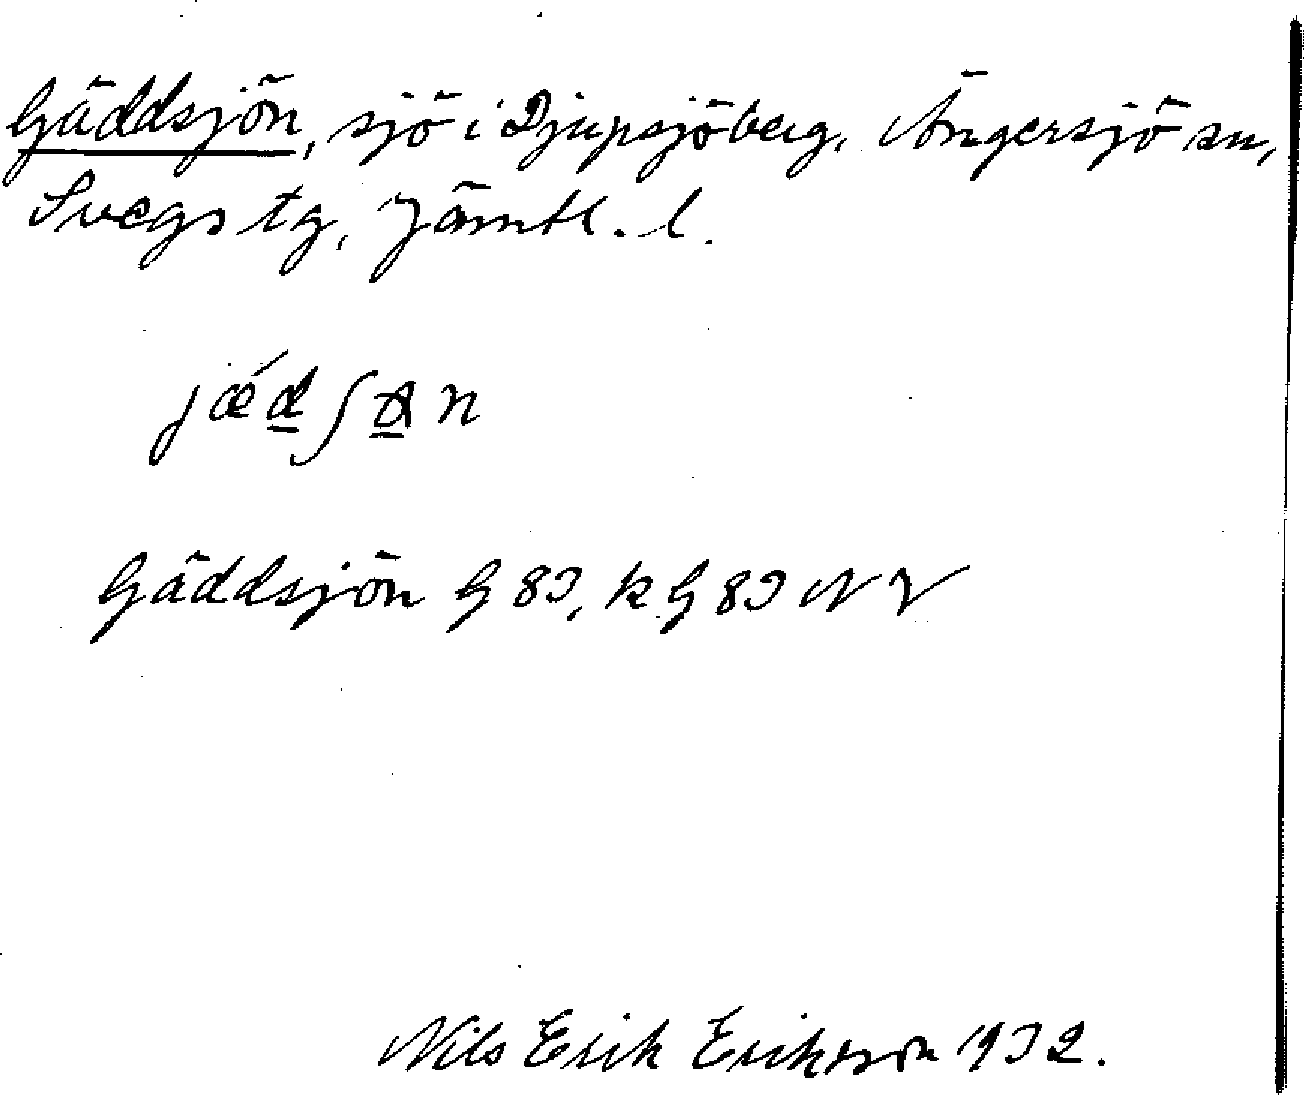 Gäddsjön, sjö i Djupsjöberg, Ängersjö sn,
Svegs tg, Jämtl. l.
Gäddsjön G 83, k G 83 NV
Nils Erik Eriksson 1932.